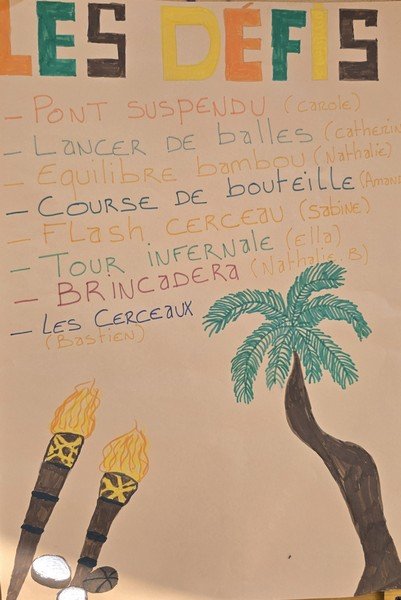 LES DÉFIS
- PONT SUSPENDU (Carole)
- LANCER DE balles (catherin
- Equilibre bambou (Nathalie)
- COURSE DE bouteille (Amand
- FLash CERCEAU (Sabine)
- TOUR INFERNALE (Ella)
- BRINCADERA (Nathalie.B)
- LES CERCEAUX
(Bastien)